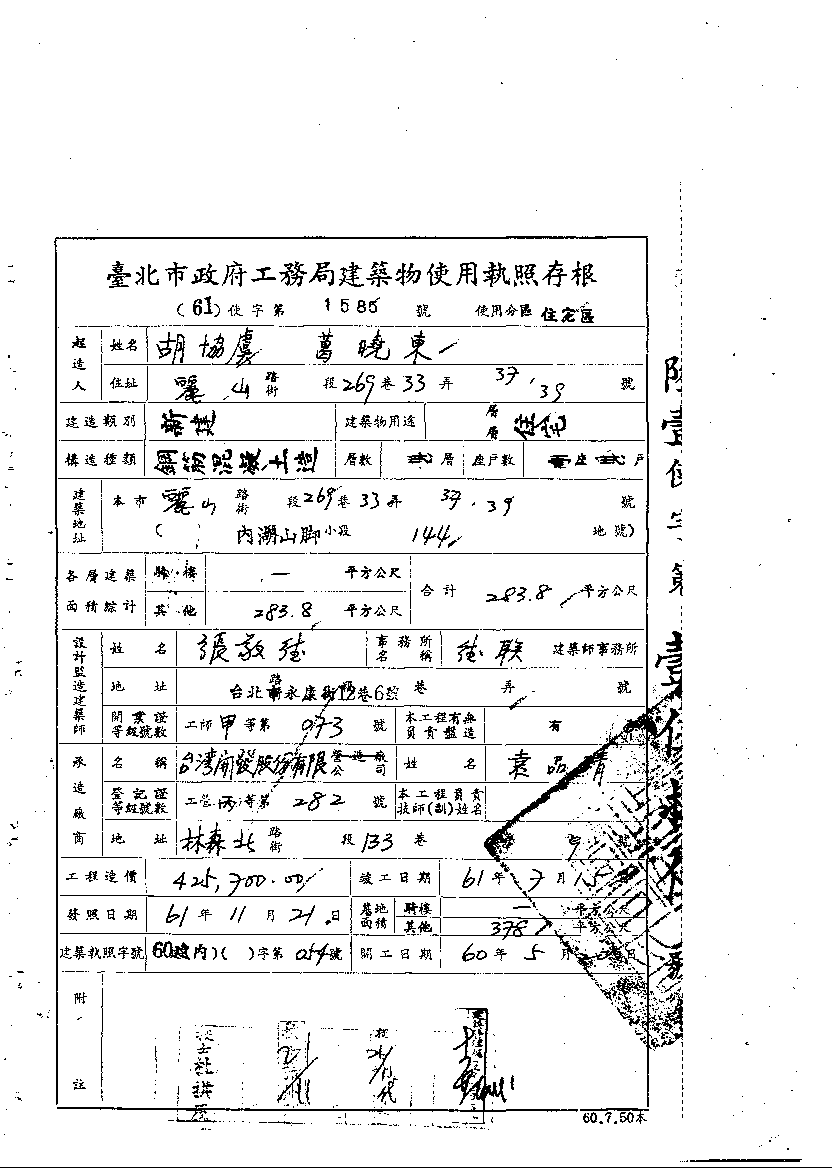 臺北市政府工務局建築物使用執照存根
(61)使字第 1585 號 使用分區 住宅區
起造人 姓名 胡協虞 葛曉東
住址 麗山 路街 段269巷33弄 37.39 號
建造類別 新建 建築物用途 層層 住宅
構造種類 鋼筋混凝土造 層數 貳層 座戶數 壹座貳戶
建築地址 本市 麗山 路街 段269巷33弄 37.39 號
( 內湖山脚小段 144 地號)
各層建築面積綜計 騎樓 — 平方公尺 合計 283.8 平方公尺
其他 283.8 平方公尺
設計監造建築師 姓名 張敬德 事務所名稱 德联 建築師事務所
地址 路 台北市永康街12巷6號 巷 弄 號
開業證等級號數 工師甲等第 073 號 本工程有無負責監造 有
承造廠商 名稱 台湾開發股份有限 營造廠公司 姓名 袁
登記證等級號數 工營丙等第 282 號 本工程負責技師(副)姓名
地址 林森北 路街 段133巷 9 號
工程造價 425,700.00 竣工日期 61年7月15日
發照日期 61年11月21日 基地面積 騎樓 — 平方公尺
其他 378 平方公尺
建築執照字號 60建(內)( )字第054號 開工日期 60年5月20日
附註
60.7.50本